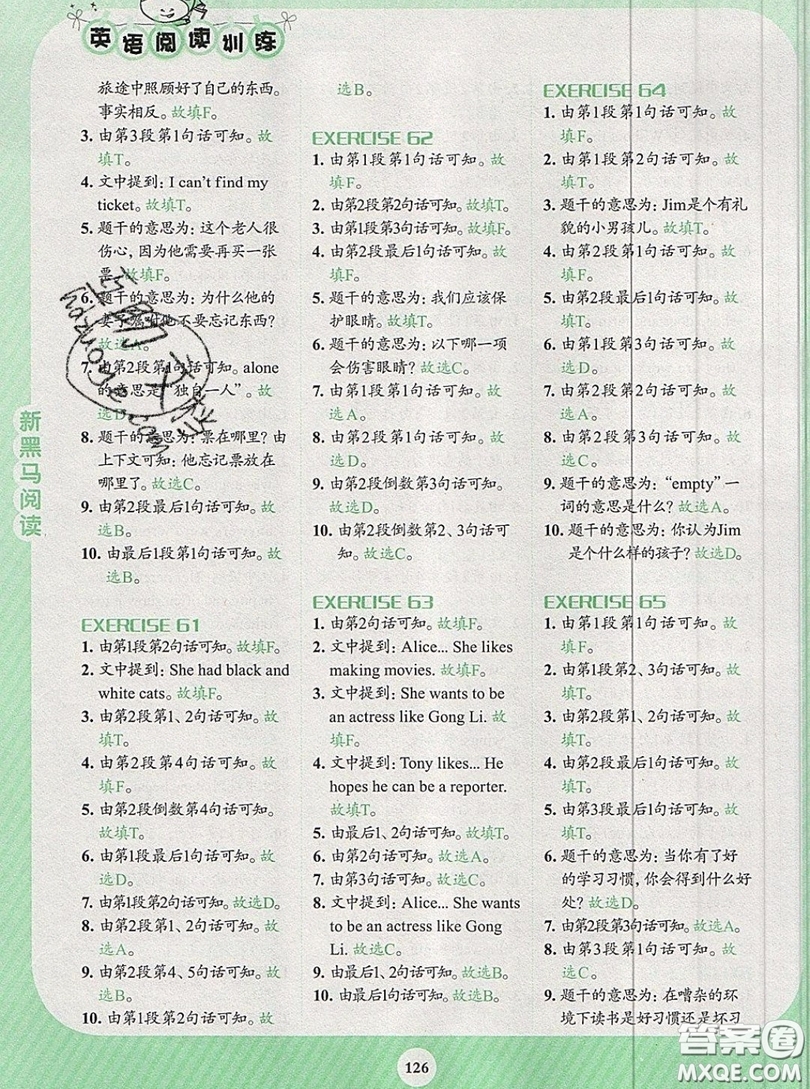 英语阅读训练
旅途中照顾好了自己的东西。
事实相反。故填F。
3. 由第3段第1句话可知。故
填T。
4. 文中提到：I can't find my
ticket。故填T。
5. 题干的意思为：这个老人很
伤心，因为他需要再买一张
票。故填F。
6. 题干的意思为：为什么他的
妻子嘱咐他不要忘记东西？
故选A。
7. 由第2段第1句话可知。alone
的意思是“独自一人”。故
选D。
8. 题干的意思为：票在哪里？由
上下文可知：他忘记票放在
哪里了。故选C。
9. 由第2段最后1句话可知。故
选B。
10. 由最后1段第1句话可知。故
选B。
EXERCISE 61
1. 由第1段第2句话可知。故填F。
2. 文中提到：She had black and
white cats。故填F。
3. 由第2段第1、2句话可知。故
填T。
4. 由第2段第4句话可知。故
填F。
5. 由第2段倒数第4句话可知。
故填T。
6. 由第1段最后1句话可知。故
选D。
7. 由第1段第2句话可知。故选D。
8. 由第2段第1、2句话可知。故
选A。
9. 由第2段第4、5句话可知。故
选B。
10. 由第1段第2句话可知。故
选B。
EXERCISE 62
1. 由第1段第1句话可知。故
填F。
2. 由第2段第2句话可知。故填T。
3. 由第1段第3句话可知。故填F。
4. 由第2段最后1句话可知。故
填F。
5. 题干的意思为：我们应该保
护眼睛。故填T。
6. 题干的意思为：以下哪一项
会伤害眼睛？故选C。
7. 由第1段第1句话可知。故
选A。
8. 由第2段第1句话可知。故
选D。
9. 由第2段倒数第3句话可知。
故选A。
10. 由第2段倒数第2、3句话可
知。故选C。
EXERCISE 63
1. 由第2句话可知。故填F。
2. 文中提到：Alice... She likes
making movies. 故填F。
3. 文中提到：She wants to be
an actress like Gong Li. 故
填F。
4. 文中提到：Tony likes... He
hopes he can be a reporter.
故填T。
5. 由最后1、2句话可知。故填T。
6. 由第2句话可知。故选A。
7. 由第3句话可知。故选D。
8. 文中提到：Alice... She wants
to be an actress like Gong
Li. 故选C。
9. 由最后1、2句话可知。故选A。
10. 由最后1句话可知。故选B。
EXERCISE 64
1. 由第1段第1句话可知。故
填F。
2. 由第1段第2句话可知。故
填F。
3. 题干的意思为：Jim是个有礼
貌的小男孩儿。故填T。
4. 由第2段第1句话可知。故
填F。
5. 由第2段最后1句话可知。故
填T。
6. 由第1段第1句话可知。故
选D。
7. 由第2段第1句话可知。故
选B。
8. 由第2段第3句话可知。故
选C。
9. 题干的意思为：“empty”一
词的意思是什么？故选A。
10. 题干的意思为：你认为Jim
是个什么样的孩子？故选D。
EXERCISE 65
1. 由第1段第1句话可知。故
填F。
2. 由第1段第2、3句话可知。故
填T。
3. 由第2段第1句话可知。故
填T。
4. 由第2段最后1句话可知。故
填F。
5. 由第3段最后1句话可知。故
填T。
6. 题干的意思为：当你有了好
的学习习惯，你会得到什么好
处？故选D。
7. 由第2段第3句话可知。故选D。
8. 由第3段第1句话可知。故
选C。
9. 题干的意思为：在嘈杂的环
境下读书是好习惯还是坏习
新黑马阅读
126
答案圈
MXQE.COM